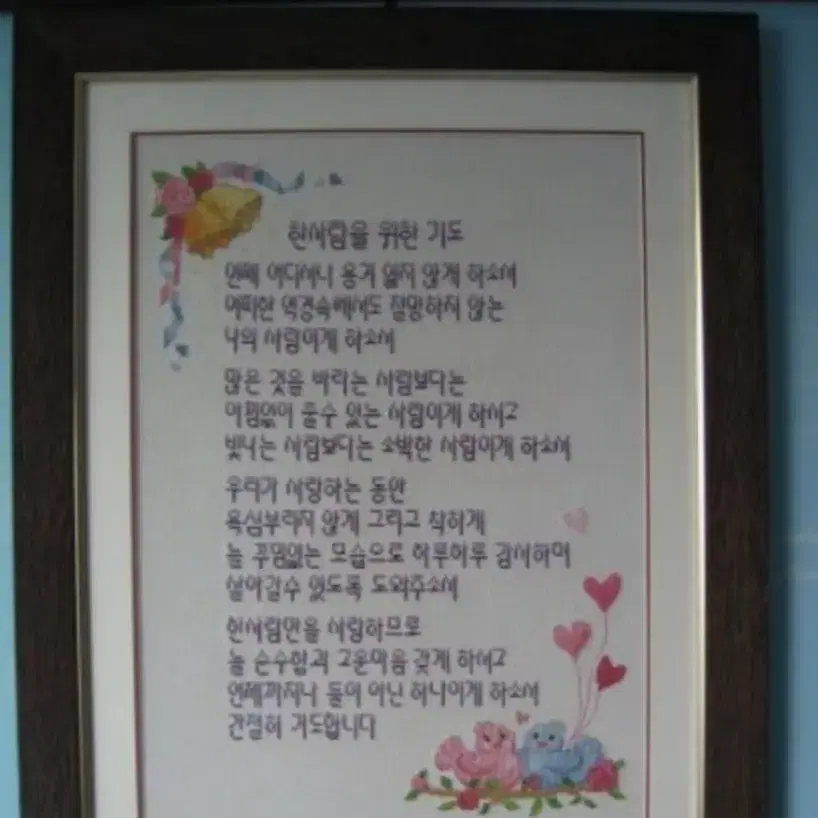 한사람을 위한 기도
언제 어디서나 용기 잃지 않게 하소서
어떠한 역경속에서도 절망하지 않는
나의 사람이게 하소서
많은 것을 바라는 사람보다는
아낌없이 줄수 있는 사람이게 하시고
빛나는 사람보다는 소박한 사람이게 하소서
우리가 사랑하는 동안
욕심부리지 않게 그리고 착하게
늘 꾸밈없는 모습으로 하루하루 감사하며
살아갈수 있도록 도와주소서
한사람만을 사랑하므로
늘 순수함과 고운마음 갖게 하시고
언제까지나 둘이 아닌 하나이게 하소서
간절히 기도합니다